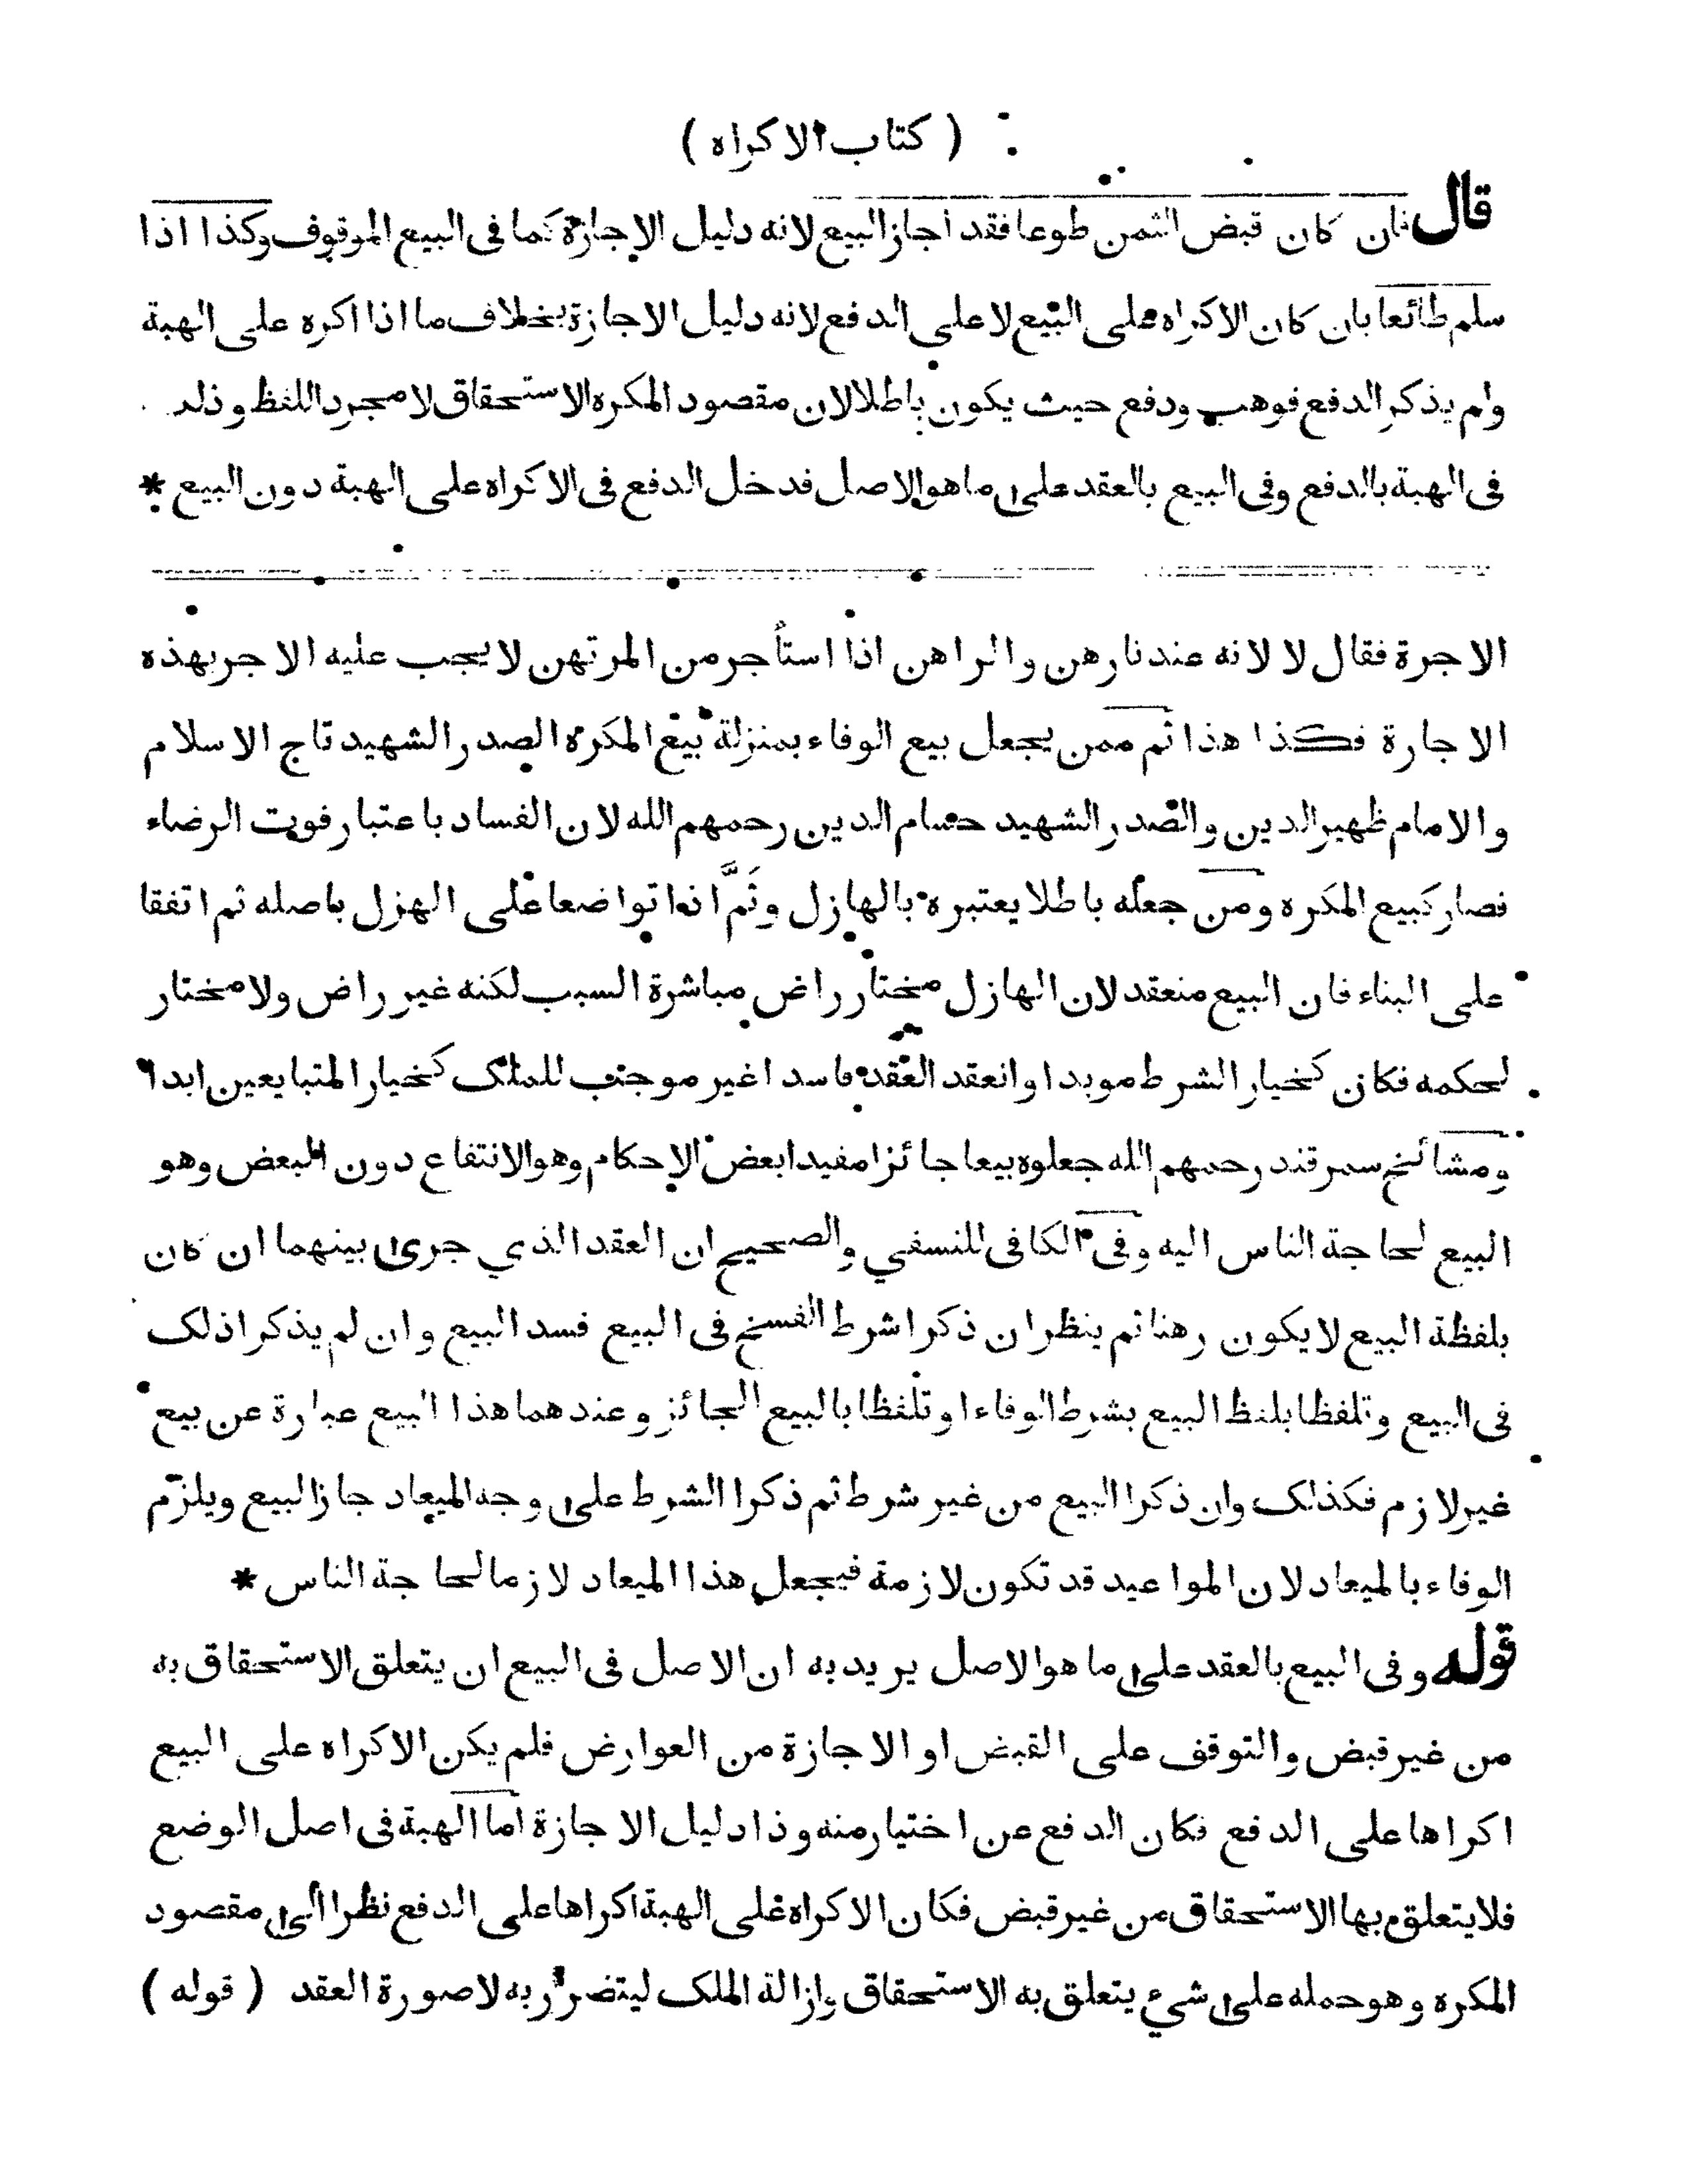 ( كتاب الاكراه )
قال فان كان قبض الثمن طوعا فقد اجاز البيع لانه دليل الاجازة كما فى البيع الموقوف وكذا اذا
سلم طائعا بان كان الاكراه على البيع لا على الدفع لانه دليل الاجازة بخلاف ما اذا اكره على الهبة
ولم يذكر الدفع فوهب ودفع حيث يكون باطلا لان مقصود المكره الاستحقاق لا مجرد اللفظ وذلك
فى الهبة بالدفع وفى البيع بالعقد على ما هو الاصل فدخل الدفع فى الاكراه على الهبة دون البيع *
الاجرة فقال لا لانه عندنا رهن والراهن اذا استأجر من المرتهن لا يجب عليه الاجر بهذه
الاجارة فكذا هذا ثم ممن يجعل بيع الوفاء بمنزلة بيع المكره الصدر الشهيد تاج الاسلام
والامام ظهير الدين والصدر الشهيد حسام الدين رحمهم الله لان الفساد باعتبار فوت الرضاء
فصار كبيع المكره ومن جعله باطلا يعتبره بالهازل وثَمَّ اذا تواضعا على الهزل باصله ثم اتفقا
على البناء فان البيع منعقد لان الهازل مختار راض مباشرة السبب لكنه غير راض ولا مختار
لحكمه فكان كخيار الشرط موبدا وانعقد العقد فاسدا غير موجب للملك كخيار المتبايعين ابدا
ومشائخ سمرقند رحمهم الله جعلوه بيعا جائزا مفيدا بعض الاحكام وهو الانتفاع دون البعض وهو
البيع لحاجة الناس اليه وفى الكافى للنسفي والصحيح ان العقد الذي جرى بينهما ان كان
بلفظة البيع لا يكون رهنا ثم ينظر ان ذكرا شرط الفسخ فى البيع فسد البيع وان لم يذكرا ذلك
فى البيع وتلفظا بلفظ البيع بشرط الوفاء او تلفظا بالبيع الجائز وعندهما هذا البيع عبارة عن بيع
غير لازم فكذلك وان ذكرا البيع من غير شرط ثم ذكرا الشرط على وجه الميعاد جاز البيع ويلزم
الوفاء بالميعاد لان المواعيد قد تكون لازمة فيجعل هذا الميعاد لازما لحاجة الناس *
قوله وفى البيع بالعقد على ما هو الاصل يريد به ان الاصل فى البيع ان يتعلق الاستحقاق به
من غير قبض والتوقف على القبض او الاجازة من العوارض فلم يكن الاكراه على البيع
اكراها على الدفع فكان الدفع عن اختيار منه وذا دليل الاجازة اما الهبة فى اصل الوضع
فلا يتعلق بها الاستحقاق من غير قبض فكان الاكراه على الهبة اكراها على الدفع نظرا الى مقصود
المكره وهو حمله على شيء يتعلق به الاستحقاق وازالة الملك ليتضرر به لا صورة العقد ( قوله )